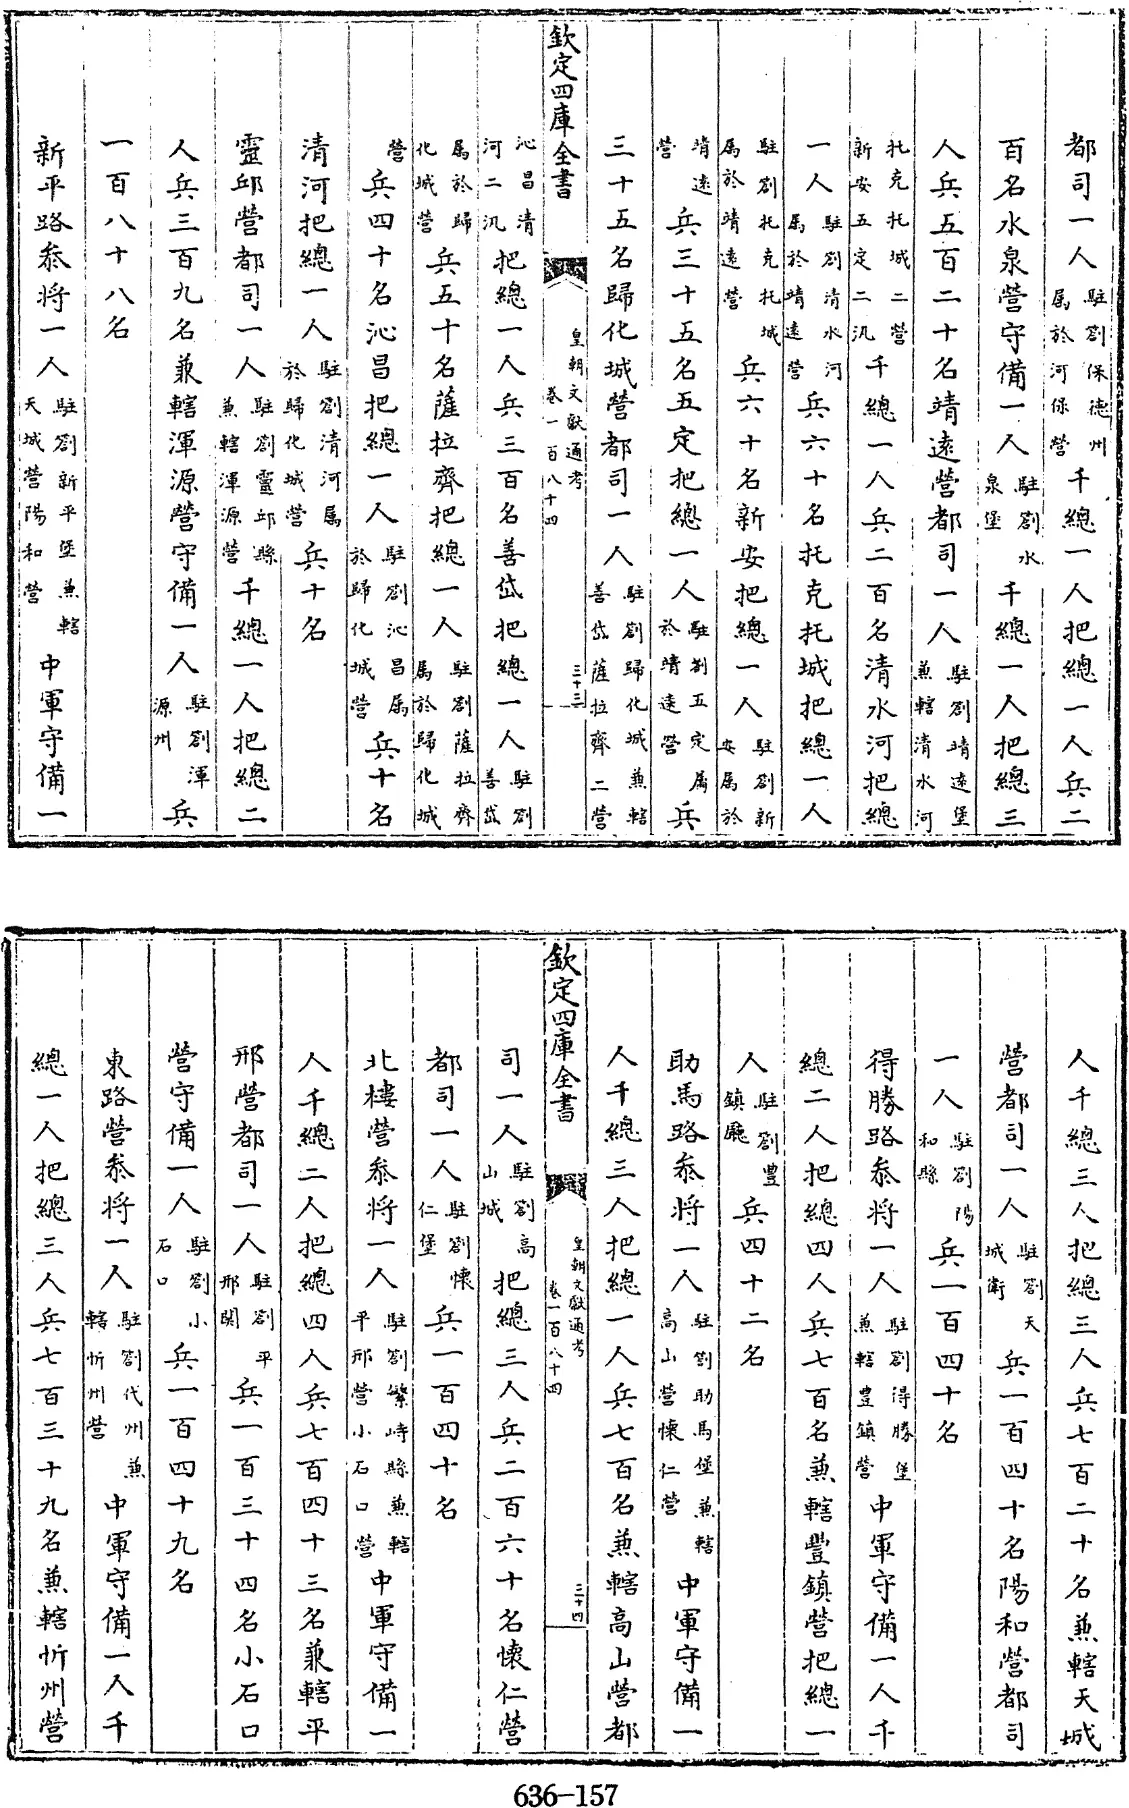 都司一人駐劄保德州属於河保營千總一人把總一人兵二
百名水泉營守備一人駐劄水泉堡千總一人把總三
人兵五百二十名靖遠營都司一人駐劄靖遠堡兼轄清水河
托克托城二營新安五定二汛千總一人兵二百名清水河把總
一人駐劄清水河属於靖遠營兵六十名托克托城把總一人
駐劄托克托城属於靖遠營兵六十名新安把總一人駐劄新安属於
靖遠營兵三十五名五定把總一人駐劄五定属於靖遠營兵
三十五名歸化城營都司一人駐劄歸化城兼轄善岱薩拉齊二營
欽定四庫全書
皇朝文獻通考
卷一百八十四
三十三
沁昌清河二汛把總一人兵三百名善岱把總一人駐劄善岱
属於歸化城營兵五十名薩拉齊把總一人駐劄薩拉齊属於歸化城
營兵四十名沁昌把總一人駐劄沁昌属於歸化城營兵十名
清河把總一人駐劄清河属於歸化城營兵十名
靈邱營都司一人駐劄靈邱縣兼轄渾源營千總一人把總二
人兵三百九名兼轄渾源營守備一人駐劄渾源州兵
一百八十八名
新平路叅将一人駐劄新平堡兼轄天城營陽和營中軍守備一
人千總三人把總三人兵七百二十名兼轄天城
營都司一人駐劄天城衛兵一百四十名陽和營都司
一人駐劄陽和縣兵一百四十名
得勝路叅将一人駐劄得勝堡兼轄豊鎮營中軍守備一人千
總二人把總四人兵七百名兼轄豐鎮營把總一
人駐劄豊鎮廳兵四十二名
助馬路叅将一人駐劄助馬堡兼轄高山營懷仁營中軍守備一
人千總三人把總一人兵七百名兼轄高山營都
欽定四庫全書
皇朝文獻通考
卷一百八十四
三十四
司一人駐劄高山城把總三人兵二百六十名懷仁營
都司一人駐劄懷仁堡兵一百四十名
北樓營叅将一人駐劄繁峙縣兼轄平邢營小石口營中軍守備一
人千總二人把總四人兵七百四十三名兼轄平
邢營都司一人駐劄平邢關兵一百三十四名小石口
營守備一人駐劄小石口兵一百四十九名
東路營叅将一人駐劄代州兼轄忻州營中軍守備一人千
總一人把總三人兵七百三十九名兼轄忻州營
636-157